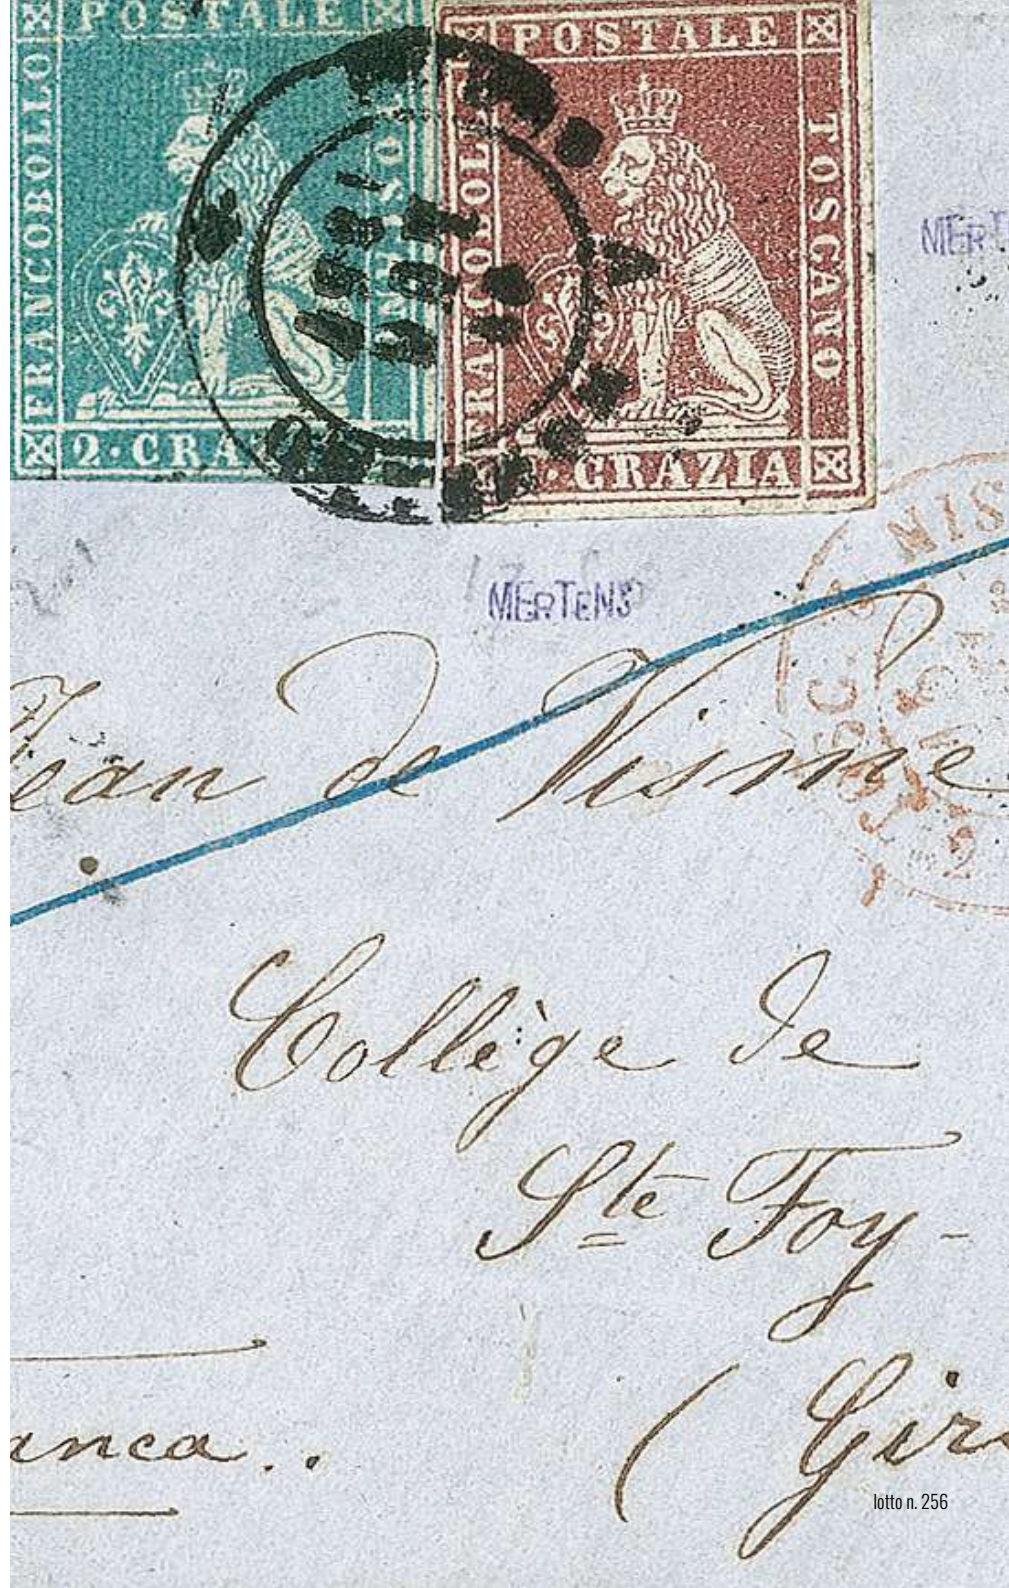 POSTALE
FRANCOBOLLO
2·CRA
POSTALE
TOSCANO
GRAZIA
1851
MERT
MERTENS
NIS
Jean de Visme
Collège de
Ste Foy -
anca..
( Gir
lotto n. 256